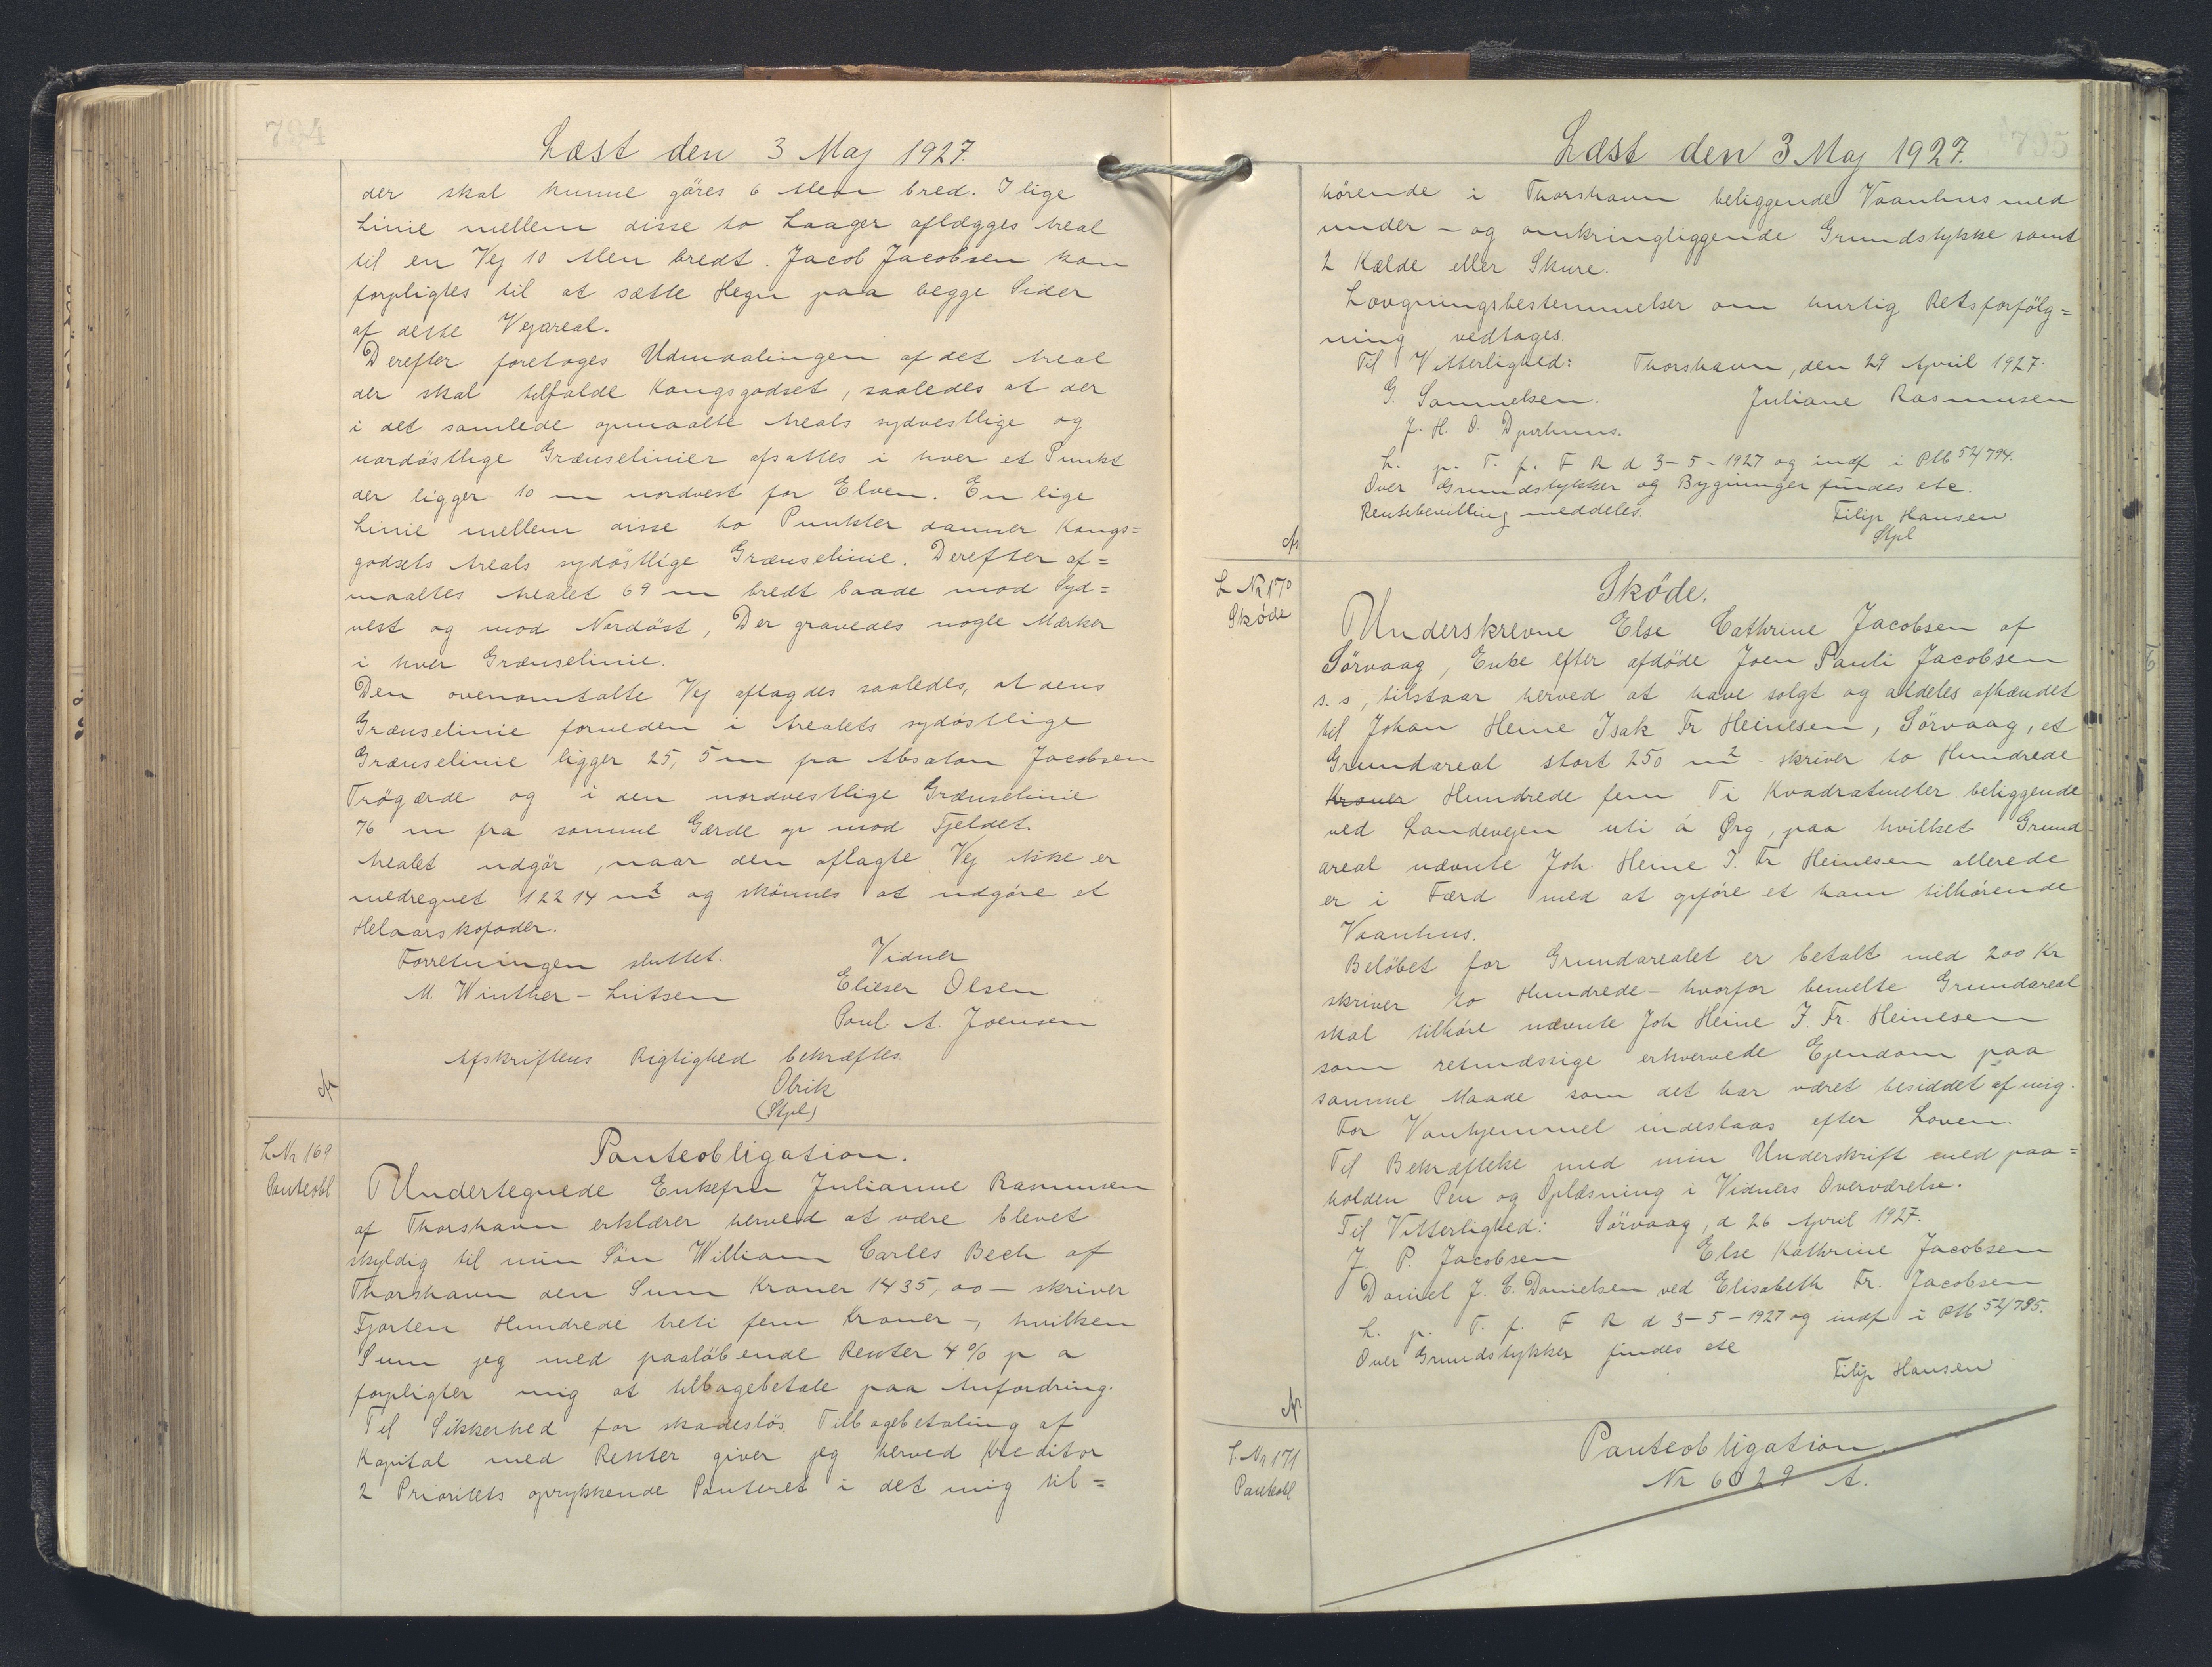 794
Læst den 3 Maj 1927.
der skal kunne göres 6 Alen bred. I lige
Linie mellem disse to Laager aflægges Areal
til en Vej 10 Alen bredt. Jacob Jacobsen kan
forpligtes til at sætte Hegn paa begge Sider
af dette Vejareal.
Derefter foretoges Udmaalingen af det Areal
der skal tilfalde Kongsgodset, saaledes at der
i det samlede opmaalte Areals sydvestlige og
nordöstlige Grænselinier afsattes i hver et Punkt
der ligger 10 m nordvest for Elven. En lige
Linie mellem disse to Punkter danner Kongs=
godsets Areals sydöstlige Grænselinie. Derefter af=
maaltes Arealet 69 m bredt baade mod Syd=
vest og mod Nordöst, Der gravedes nogle Mærker
i hver Grænselinie.
Den ovenomtalte Vej aflagdes saaledes, at dens
Grænselinie forneden i Arealets sydöstlige
Grænselinie ligger 25,5 m fra Absalon Jacobsen
Trögærde og i den nordvestlige Grænselinie
76 m fra samme Gærde op mod Fjeldet.
Arealet udgör, naar den aflagte Vej ikke er
medregnet 12214 m2 og skönnes at udgöre et
Helaarskofoder.
Forretningen sluttet. Vidner
M. Winther-Lützen Elieser Olsen
Poul A. Joensen
Afskriftens Rigtighed bekræftes.
Olrik
(Stpl)
L Nr 169
Panteobl
Panteobligation.
Undertegnede Enkefru Julianne Rasmussen
af Thorshavn erklærer herved at være blevet
skyldig til min Sön William Carles Bech af
Thorshavn den Sum Kroner 1435,00 - skriver
Fjorten Hundrede treti fem Kroner -, hvilken
Sum jeg med paalöbende Renter 4% p a
forpligter mig at tilbagebetale paa Anfordring.
Til Sikkerhed for skadeslös Tilbagebetaling af
Kapital med Renter giver jeg herved Kreditor
2 Prioritets oprykkende Panteret i det mig til=
795
Læst den 3 Maj 1927.
hörende i Thorshavn beliggende Vaanhus med
under- og omkringliggende Grundstykke samt
2 Kælde eller Skure.
Lovgivningsbestemmelser om hurtig Retsforfölg=
ning vedtages.
Til Vitterlighed: Thorshavn, den 29 April 1927.
G. Samuelsen. Juliane Rasmussen
J. H. O. Djurhuus.
L. p. T. f. F R d 3-5-1927 og indf i PM 52/794.
Over Grundstykker og Bygninger findes etc.
Rentebevilling meddeles.
Filip Hansen
Stpl
L Nr 170
Sköde
Sköde.
Underskrevne Else Cathrine Jacobsen af
Sörvaag, Enke efter afdöde Joen Pauli Jacobsen
s. s, tilstaar herved at have solgt og aldeles afhændet
til Johan Heine Isak Fr Heinesen, Sörvaag, et
Grundareal stort 250 m2 - skriver to Hundrede
Kroner Hundrede fem Ti Kvadratmeter beliggende
ved Landevejen uti á Ørg, paa hvilket Grund
areal nævnte Joh. Heine I. Fr Heinesen allerede
er i Færd med at opföre et ham tilhörende
Vaanhus.
Belöbet for Grundarealet er betalt med 200 Kr
skriver to Hundrede - hvorfor bemelte Grundareal
skal tilhöre nævnte Joh Heine I. Fr. Heinesen
som retmæssige erhvervede Ejendom paa
samme Maade som det har været besiddet af mig.
For Vanhjemmel indestaas efter Loven.
Til Bekræftelse med min Underskrift med paa=
holden Pen og Oplæsning i Vidners Overværelse.
Til Vitterlighed: Sörvaag, d 26 April 1927.
J. P. Jacobsen Else Kathrine Jacobsen
Daniel J. C. Danielsen ved Elisabeth Fr. Jacobsen
L. p. T. f. F R d 3-5-1927 og indf i PM 52/795.
Over Grundstykker findes etc
Filip Hansen
L. Nr 171
Panteobl
Panteobligation.
Nr 6029 A.